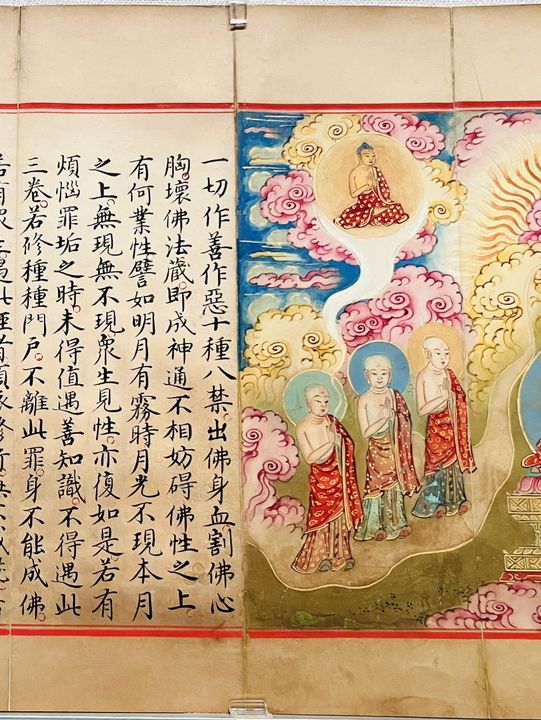 一切作善作惡十種八禁出佛身血割佛心
胸壞佛法藏即成神通不相妨碍佛性之上
有何業性譬如明月有霧時月光不現本月
之上無現無不現衆生見性亦復如是若有
煩惱罪垢之時未得值遇善知識不得遇此
三卷若修種種門户不離此罪身不能成佛